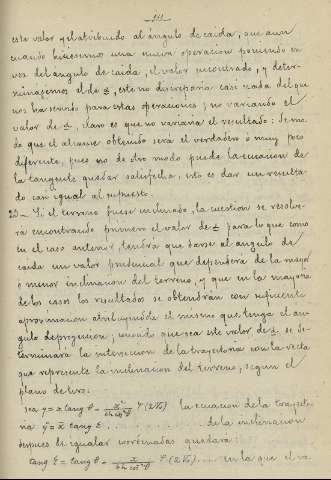 este valor y atribuido al ángulo de caida, que aun
cuando hiciesemos una nueva operacion poniendo en
vez del angulo de caida, el valor encontrado, y deter-
minasemos el de x, este no discreparia casi nada del que
nos ha servido para estas operaciones; no variando el
valor de x, claro es que no variaria el resultado: de mo-
do que el alcance obtenido será el verdadero ó muy poco
diferente, pues no de otro modo puede la ecuacion de
la tangente quedar satisfecha, esto es dar un resulta-
do casi igual al supuesto.
20 - Si el terreno fuese inclinado, la cuestion se resolve-
rá encontrando primero el valor de x para lo que como
en el caso anterior, tendrá que darse al angulo de
caida un valor prudencial que dependera de la mayor
ó menor inclinacion del terreno, y que en la mayoria
de los casos los resultados se obtendrán con suficiente
aproximacion atribuyendole el mismo que tenga el án-
gulo de proyeccion; conocido que sea este valor de x se de-
terminara la interseccion de la trayectoria con la recta
que representa la inclinacion del terreno, segun el
plano de tiro.
sea y = x tang θ - la ecuacion de la trayecto-
ria y = x tang ε . . . . . . de la inclinacion
despues de igualar coordenadas quedará:
tang ε = tang θ - . . . . en la que el va